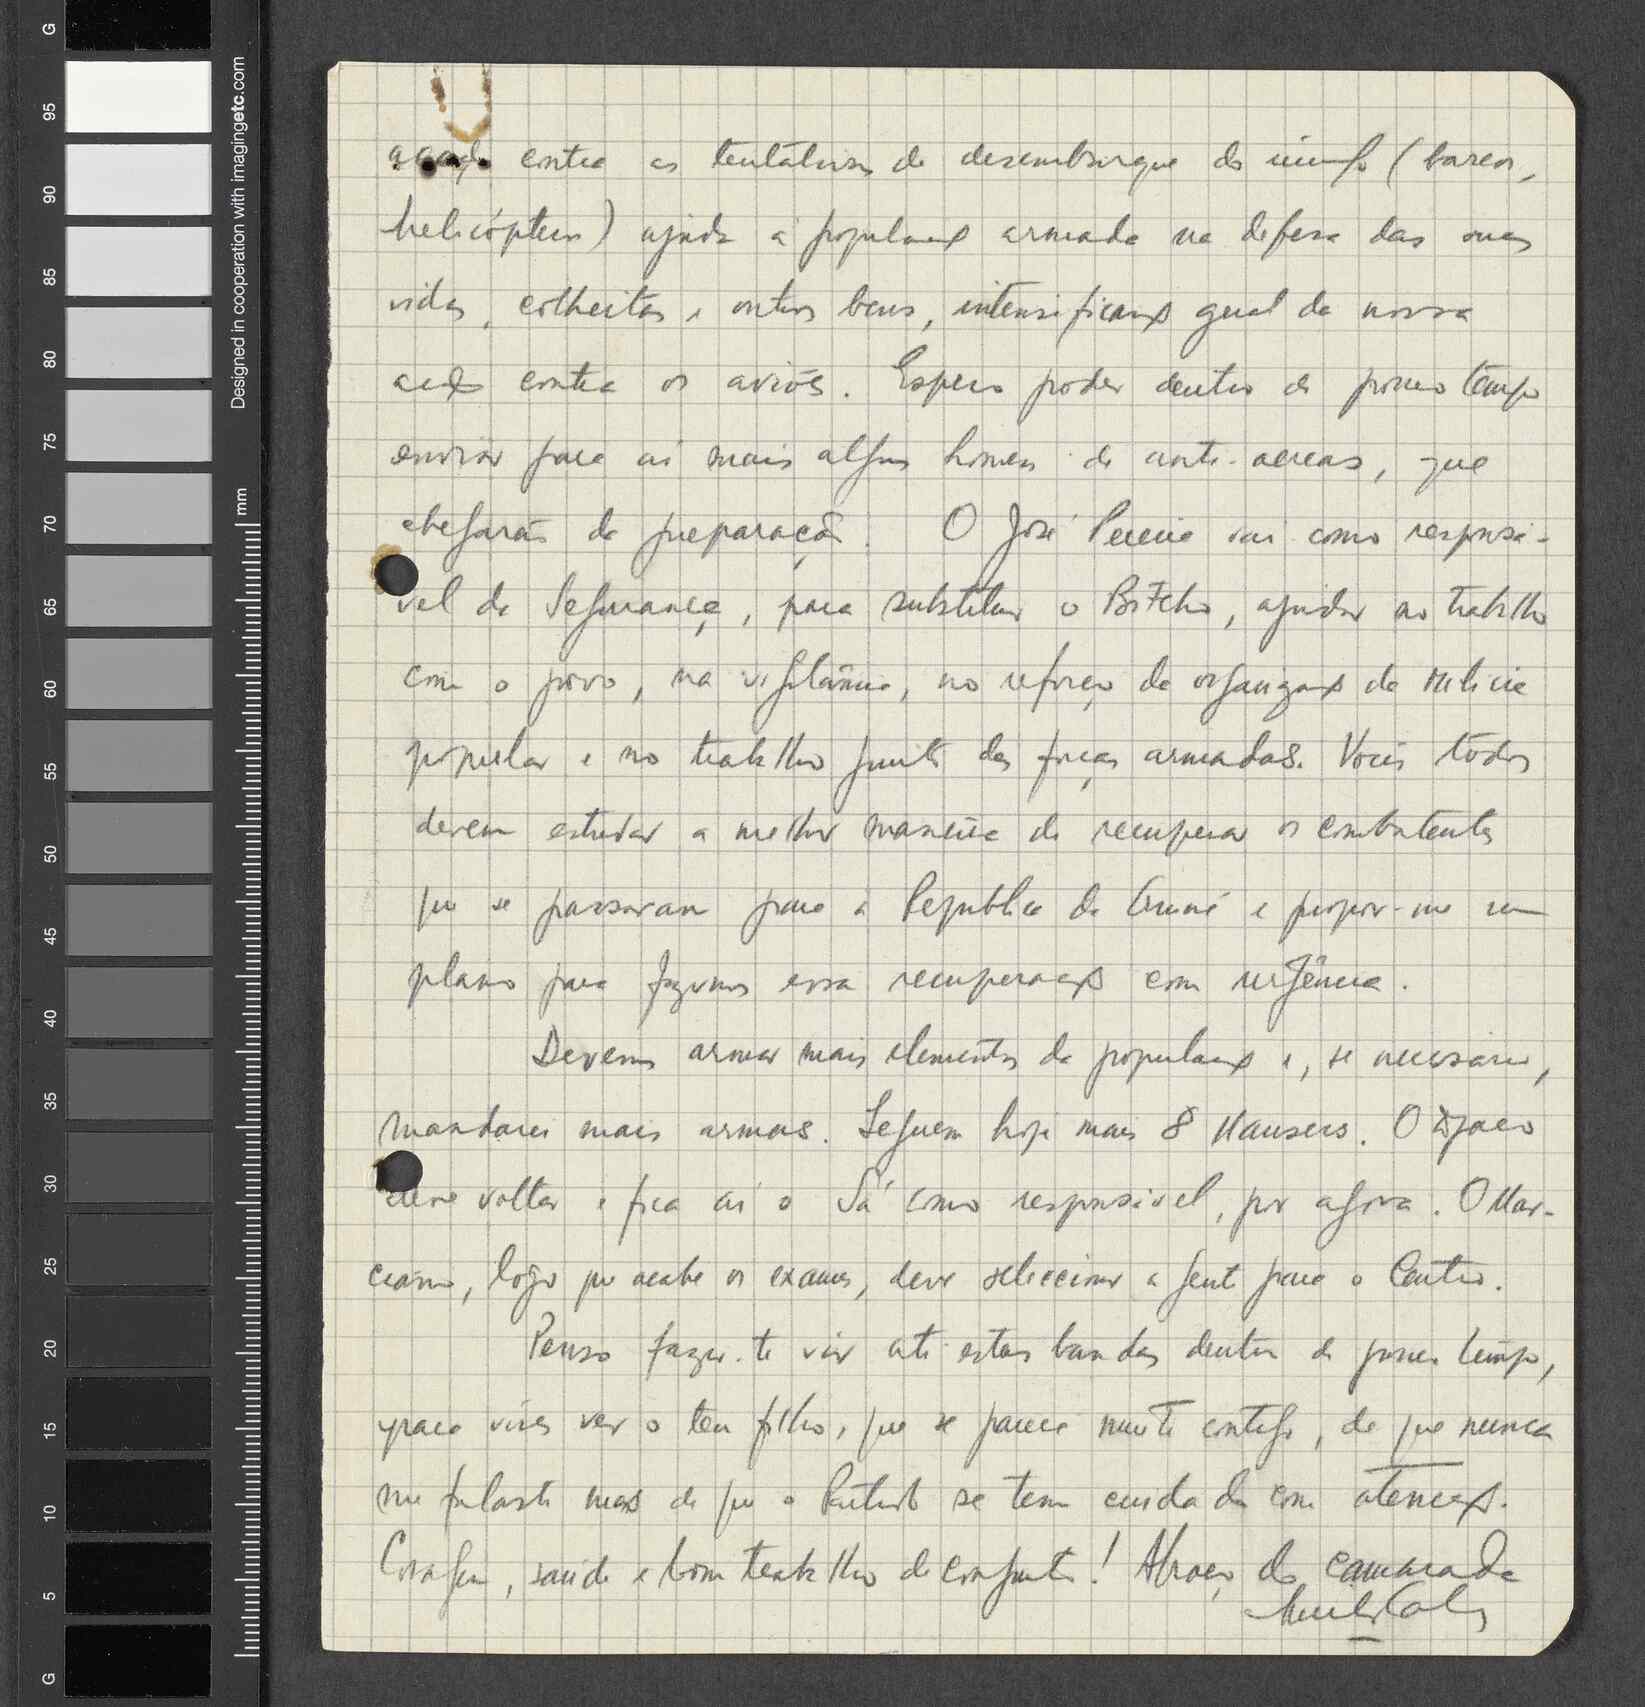 acção contra as tentativas de desembarque do inimigo (barcos,
helicópteros) ajuda à população armada na defesa das suas
vidas, colheitas e outros bens, intensificação geral da nossa
acção contra os aviões. Espero poder dentro de pouco tempo
enviar para aí mais alguns homens de anti-aéreas, que
chegarão da preparação. O José Pereira vai como responsá-
vel da Segurança, para substituir o Botcho, ajudar no trabalho
com o povo, na vigilância, no reforço da organização da milícia
popular e no trabalho junto das forças armadas. Vocês todos
devem estudar a melhor maneira de recuperar os combatentes
que se passaram para a República da Guiné e propor-me um
plano para fazermos essa recuperação com urgência.
Devemos armar mais elementos da população e, se necessário,
mandarei mais armas. Seguem hoje mais 8 Mausers. O
deve voltar e fica aí o Sá como responsável, por agora. O Mar-
ciano, logo que acabe os exames, deve seleccionar a gente para o Centro.
Penso fazer-te vir até estas bandas dentro de pouco tempo,
para vires ver o teu filho, que se parece muito contigo, de que nunca
me falaste mas de que o Partido se tem cuidado com atenção.
Coragem, saúde e bom trabalho de conjunto! Abraço do camarada
Amílcar Cabral
G
95
90
85
80
75
70
65
60
55
50
45
40
35
30
25
20
15
10
5
G
Designed in cooperation with imagingetc.com
mm